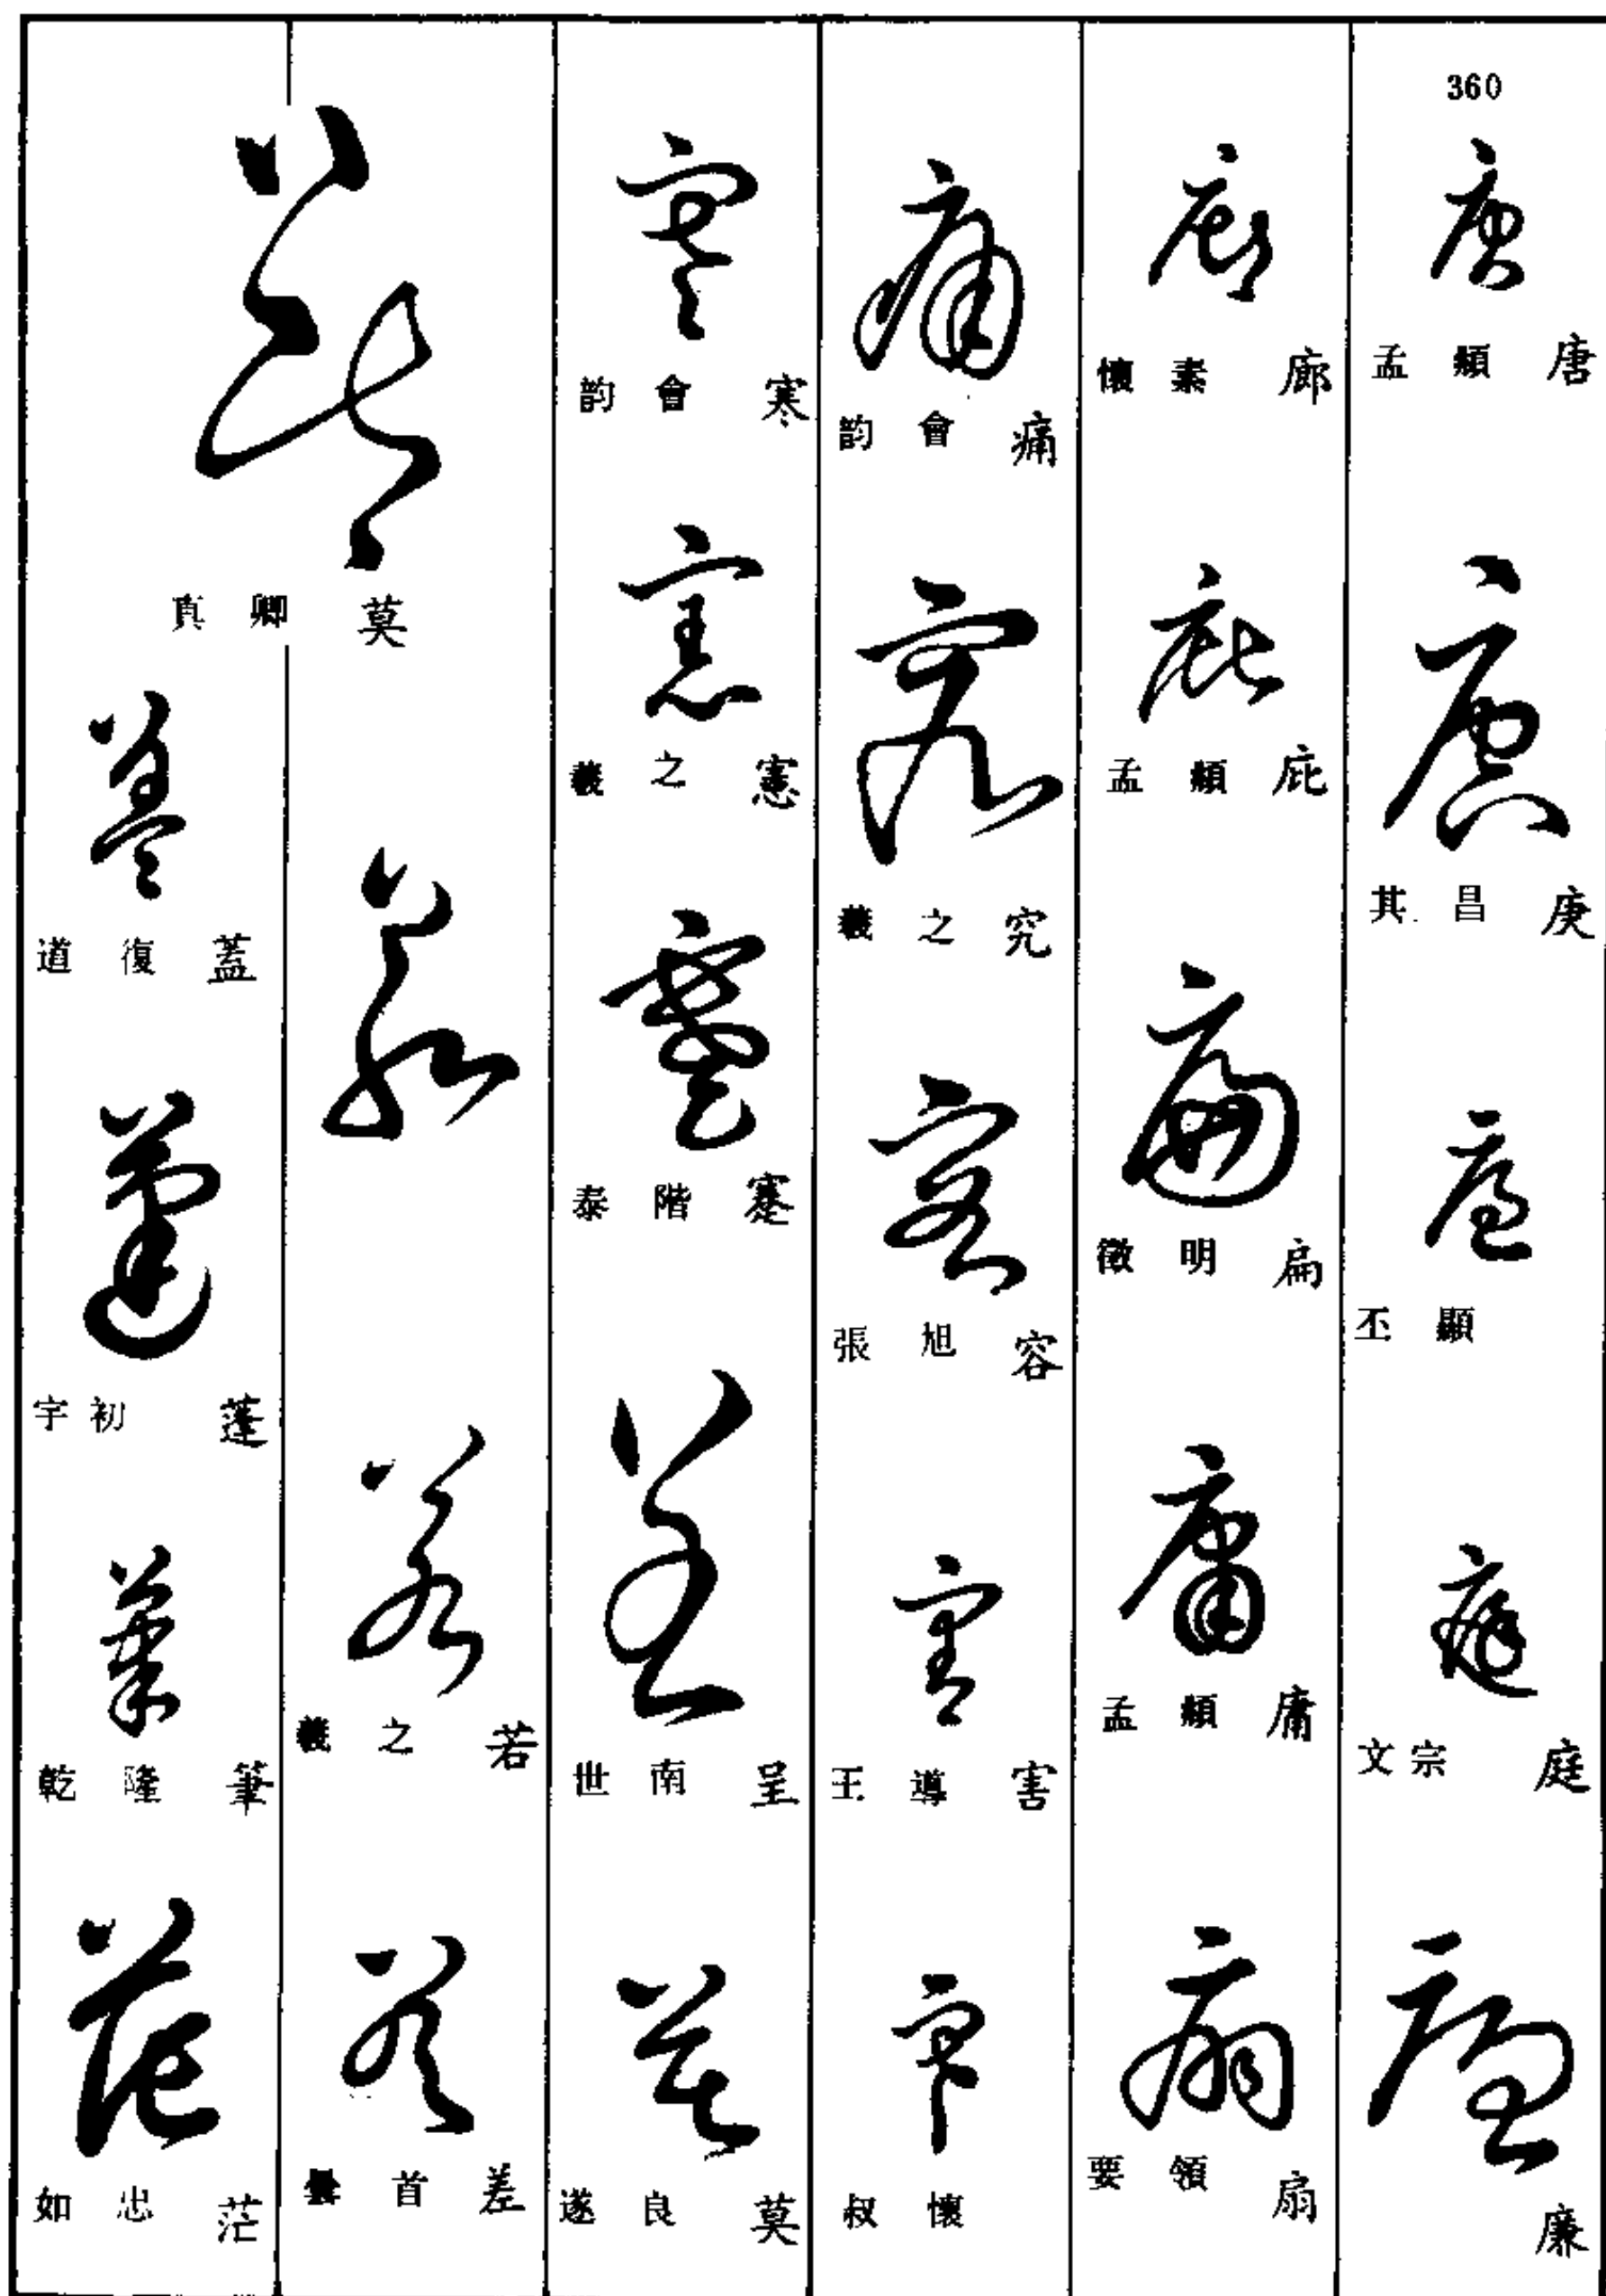 360
孟頫 唐
其昌 庚
丕顯
文宗 庭
廉
懷素 廊
孟頫 庇
徵明 扁
孟頫 庸
要領 扇
韵會 痛
羲之 究
張旭 容
王導 害
叔懷
韵會 寒
羲之 憲
泰階 蹇
世南 呈
遂良 莫
真卿 莫
羲之 若
曇首 差
道復 蓋
宇初 蓬
乾隆 筆
如忠 茫